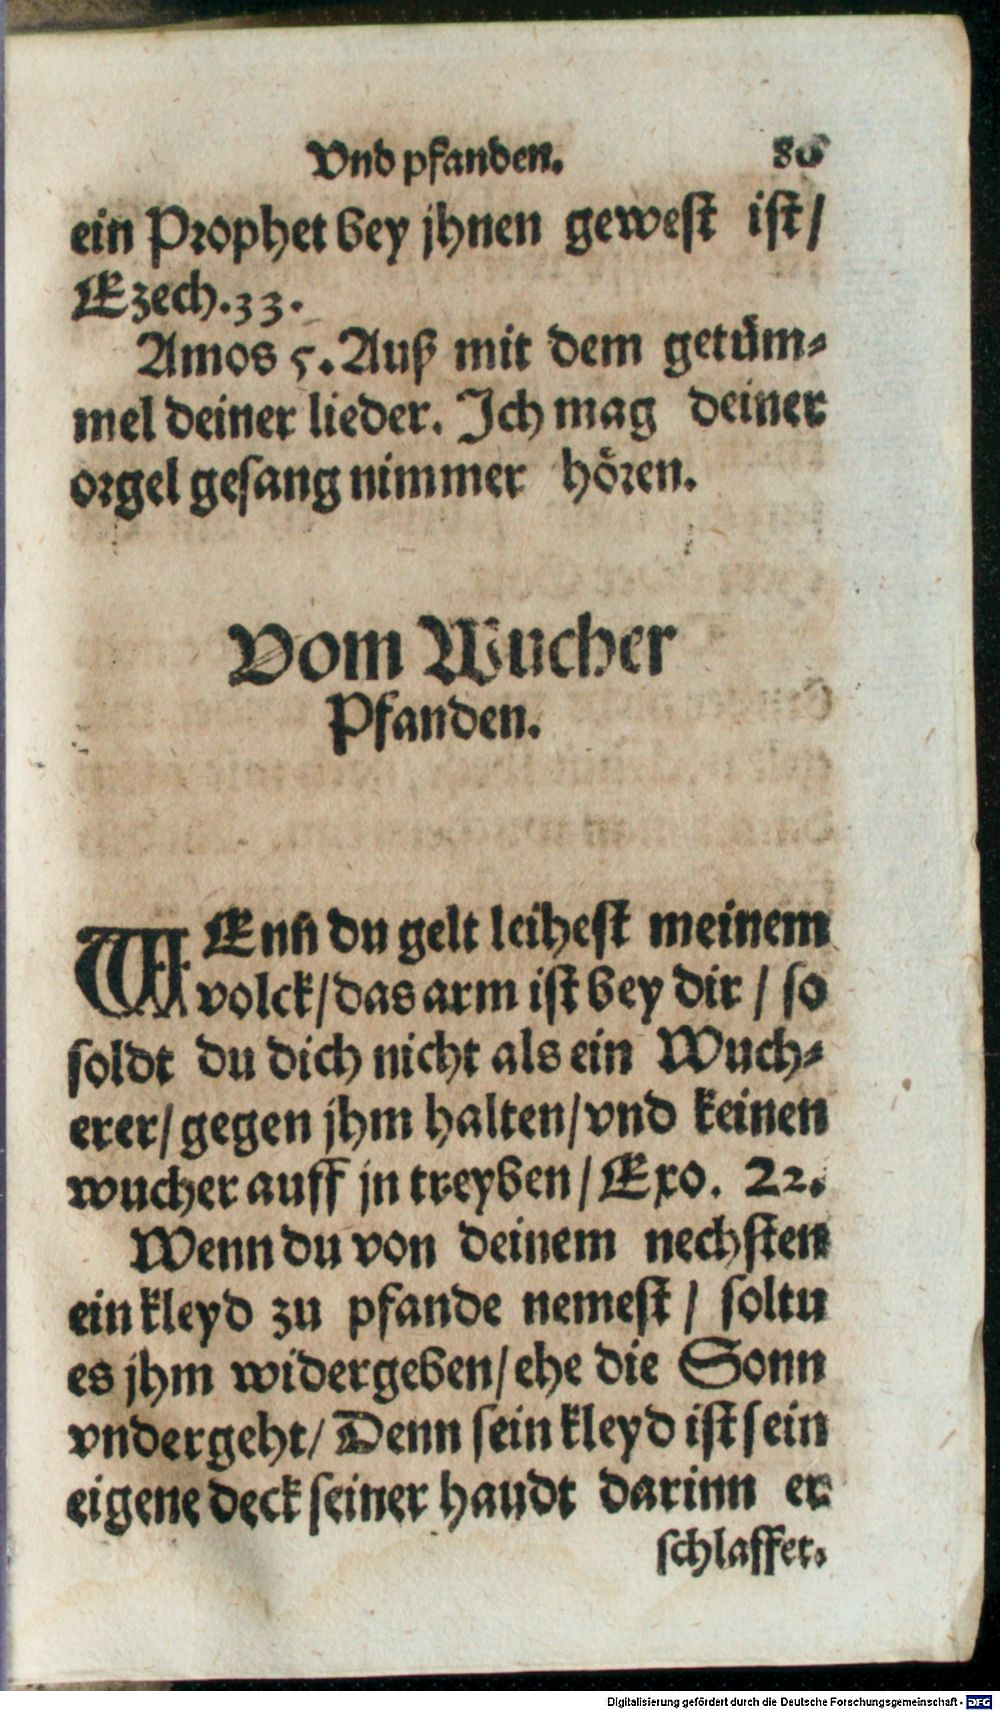 Vnd pfanden. 86
ein Prophet bey jhnen gewest ist/
Ezech.33.
Amos 5. Auß mit dem getüm⸗
mel deiner lieder. Ich mag deiner
orgel gesang nimmer hören.
Vom Wucher
Pfanden.
WEnn du gelt leihest meinem
volck/das arm ist bey dir / so
soldt du dich nicht als ein Wuch⸗
erer/gegen jhm halten/vnd keinen
wucher auff jn treyben/Exo. 22.
Wenn du von deinem nechsten
ein kleyd zu pfande nemest / soltu
es jhm widergeben/ehe die Sonn
vndergeht/Denn sein kleyd ist sein
eigene deck seiner haudt darinn er
schlaffet.
Digitalisierung gefördert durch die Deutsche Forschungsgemeinschaft - DFG